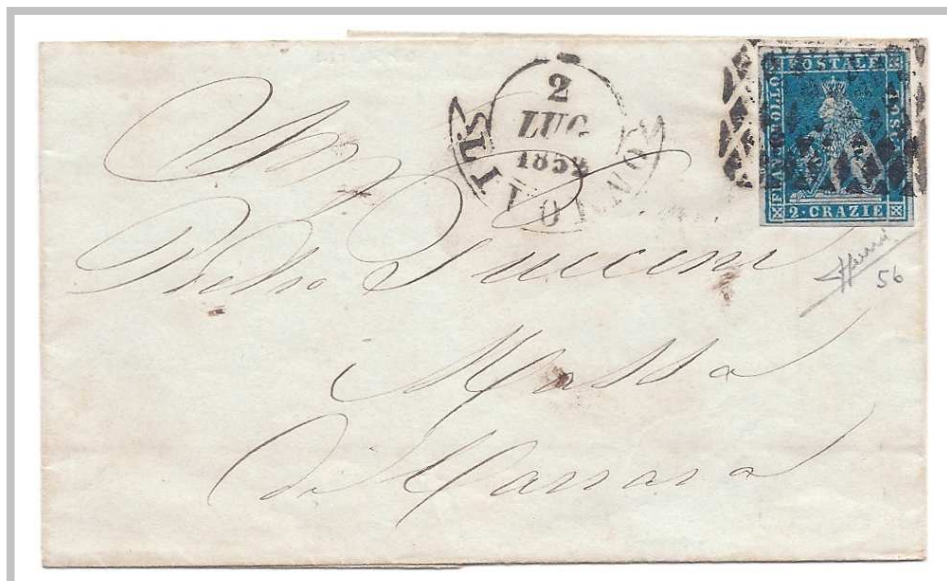 2
LUG
1852
LIVORNO
FRANCOBOLLO POSTALE TOSCANO
2 · CRAZIE
56
Pietro Puccini
Massa
di Carrara